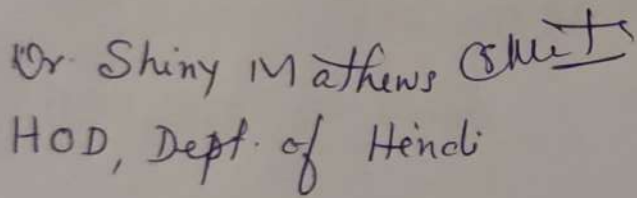 Dr. Shiny Mathews
HOD, Dept. of Hindi